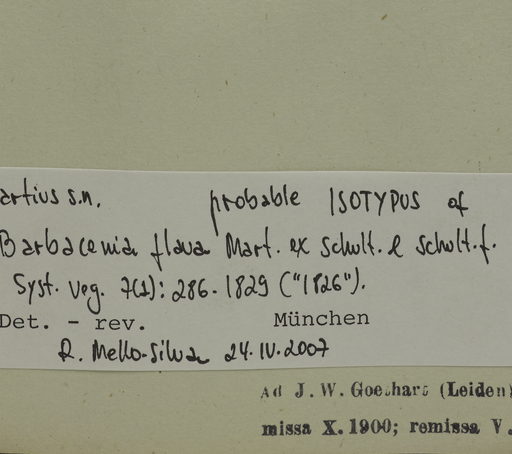 artius s.n. probable ISOTYPUS of
Barbacenia flava Mart. ex Schult. & Schult.f.
Syst. Veg. 7(1): 286. 1829 ("1826").
Det. - rev. München
R. Mello-Silva 24.IV.2007
Ad J. W. Goethart (Leiden)
missa X. 1900; remissa V.